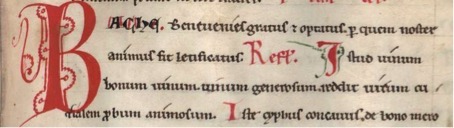 BACHE. Beneuenies gratus ⁊ optatus. ꝑ quem noster
animus fit letificatus. Refl. Istud uinum
bonum uinum uinum generosum. reddit uirum cu
rialem ꝓbum animosum. Iste cyphus concauus. de bono mero